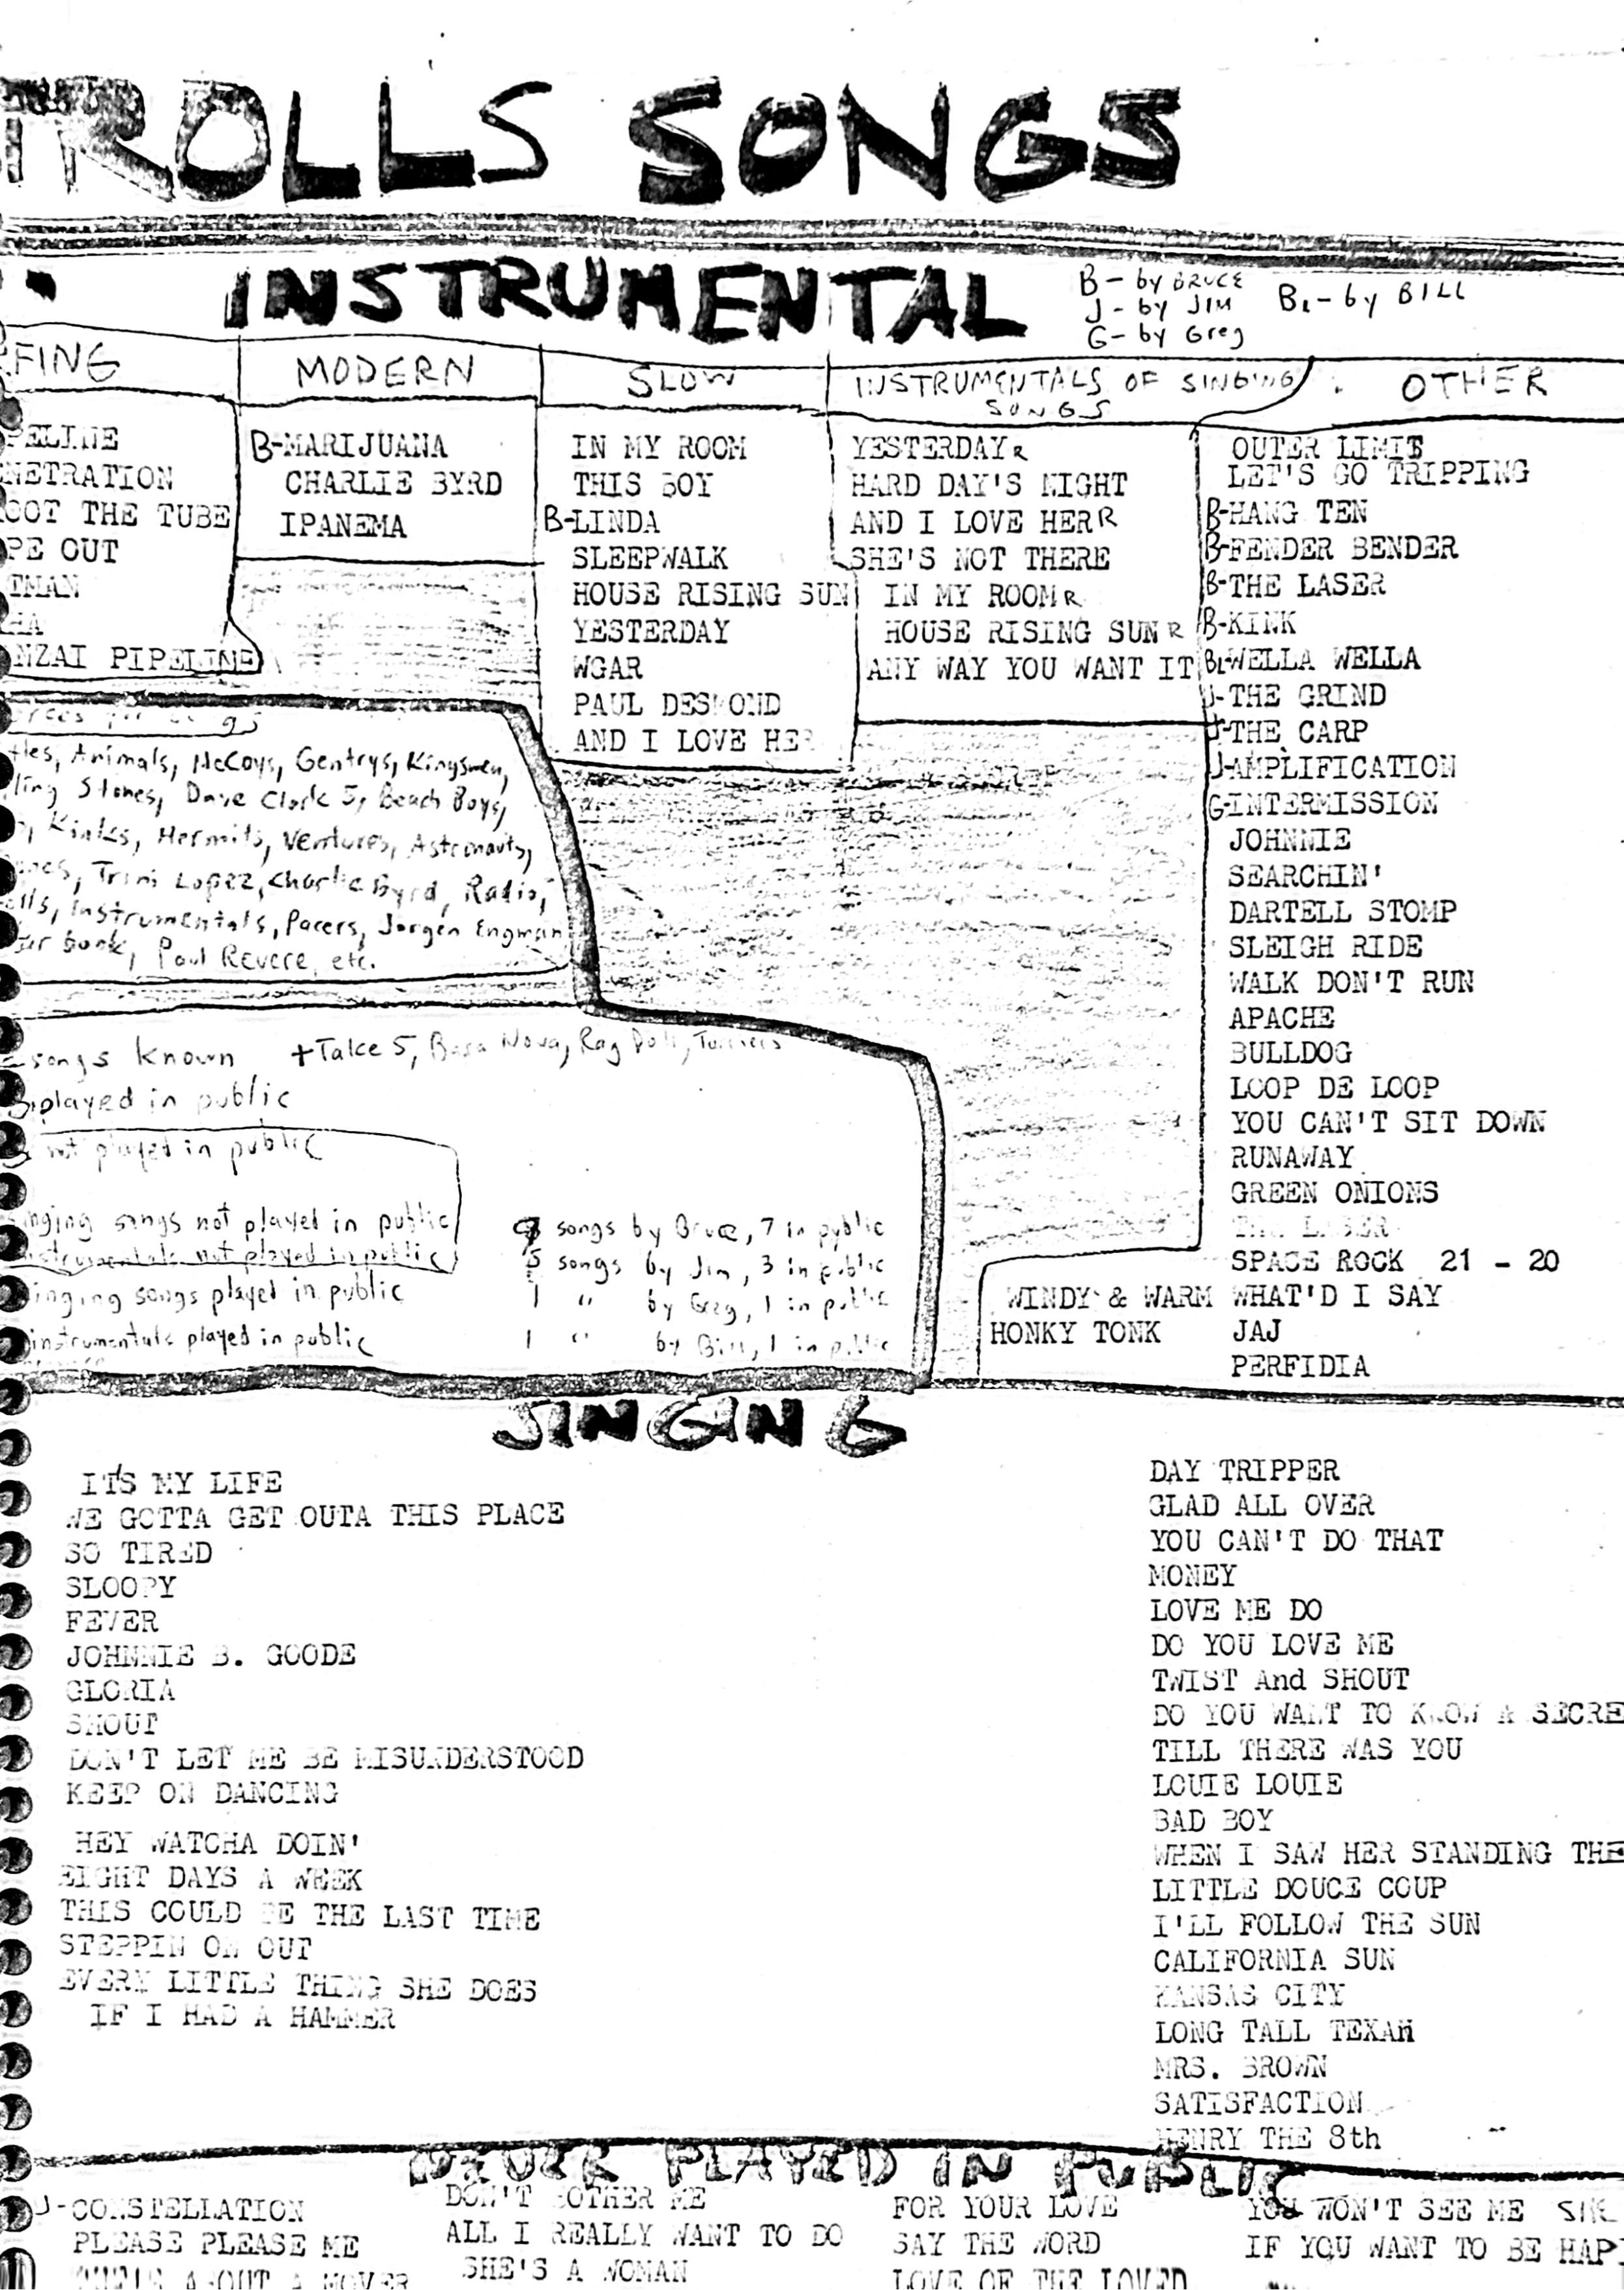 TROLLS SONGS
INSTRUMENTAL
B - by BRUCE
J - by JIM
G - by Greg
BL - by BILL
FING
PELINE
NETRATION
OOT THE TUBE
PE OUT
TMAN
HA
NZAI PIPELINE
MODERN
B-MARIJUANA
CHARLIE BYRD
IPANEMA
SLOW
IN MY ROOM
THIS BOY
B-LINDA
SLEEPWALK
HOUSE RISING SUN
YESTERDAY
WGAR
PAUL DESMOND
AND I LOVE HER
INSTRUMENTALS OF SINGING
SONGS
YESTERDAY R
HARD DAY'S NIGHT
AND I LOVE HER R
SHE'S NOT THERE
IN MY ROOM R
HOUSE RISING SUN R
ANY WAY YOU WANT IT
OTHER
OUTER LIMIT
LET'S GO TRIPPING
B-HANG TEN
B-FENDER BENDER
B-THE LASER
B-KINK
BL-WELLA WELLA
J-THE GRIND
J-THE CARP
J-AMPLIFICATION
G-INTERMISSION
JOHNNIE
SEARCHIN'
DARTELL STOMP
SLEIGH RIDE
WALK DON'T RUN
APACHE
BULLDOG
LOOP DE LOOP
YOU CAN'T SIT DOWN
RUNAWAY
GREEN ONIONS
THE LASER
SPACE ROCK 21 - 20
WINDY & WARM WHAT'D I SAY
HONKY TONK JAJ
PERFIDIA
tles, Animals, McCoys, Gentrys, Kingsmen,
ling Stones, Dave Clark 5, Beach Boys,
Kinks, Hermits, Ventures, Astronauts,
Trini Lopez, Charlie Byrd, Radio,
lls, Instrumentals, Pacers, Jorgen Engman
book, Paul Revere, etc.
songs known + Take 5, Bosa Nova, Rag Doll,
played in public
not played in public
nging songs not played in public
instrumentals not played in public
inging songs played in public
instrumentals played in public
songs by Bruce, 7 in public
5 songs by Jim, 3 in public
1 " by Greg, 1 in public
1 " by Bill, 1 in public
SINGING
IT'S MY LIFE
WE GOTTA GET OUTA THIS PLACE
SO TIRED
SLOOPY
FEVER
JOHNNIE B. GOODE
GLORIA
SHOUT
DON'T LET ME BE MISUNDERSTOOD
KEEP ON DANCING
HEY WATCHA DOIN'
EIGHT DAYS A WEEK
THIS COULD BE THE LAST TIME
STEPPIN ON OUT
EVERY LITTLE THING SHE DOES
IF I HAD A HAMMER
DAY TRIPPER
GLAD ALL OVER
YOU CAN'T DO THAT
MONEY
LOVE ME DO
DO YOU LOVE ME
TWIST And SHOUT
DO YOU WANT TO KNOW A SECRE
TILL THERE WAS YOU
LOUIE LOUIE
BAD BOY
WHEN I SAW HER STANDING THE
LITTLE DOUCE COUP
I'LL FOLLOW THE SUN
CALIFORNIA SUN
KANSAS CITY
LONG TALL TEXAN
MRS. BROWN
SATISFACTION
HENRY THE 8th
NEVER PLAYED IN PUBLIC
J-CONSTELLATION
PLEASE PLEASE ME
A MOVER
DON'T BOTHER ME
ALL I REALLY WANT TO DO
SHE'S A WOMAN
FOR YOUR LOVE
SAY THE WORD
LOVE OF THE LOVED
YOU WON'T SEE ME SHE
IF YOU WANT TO BE HAP